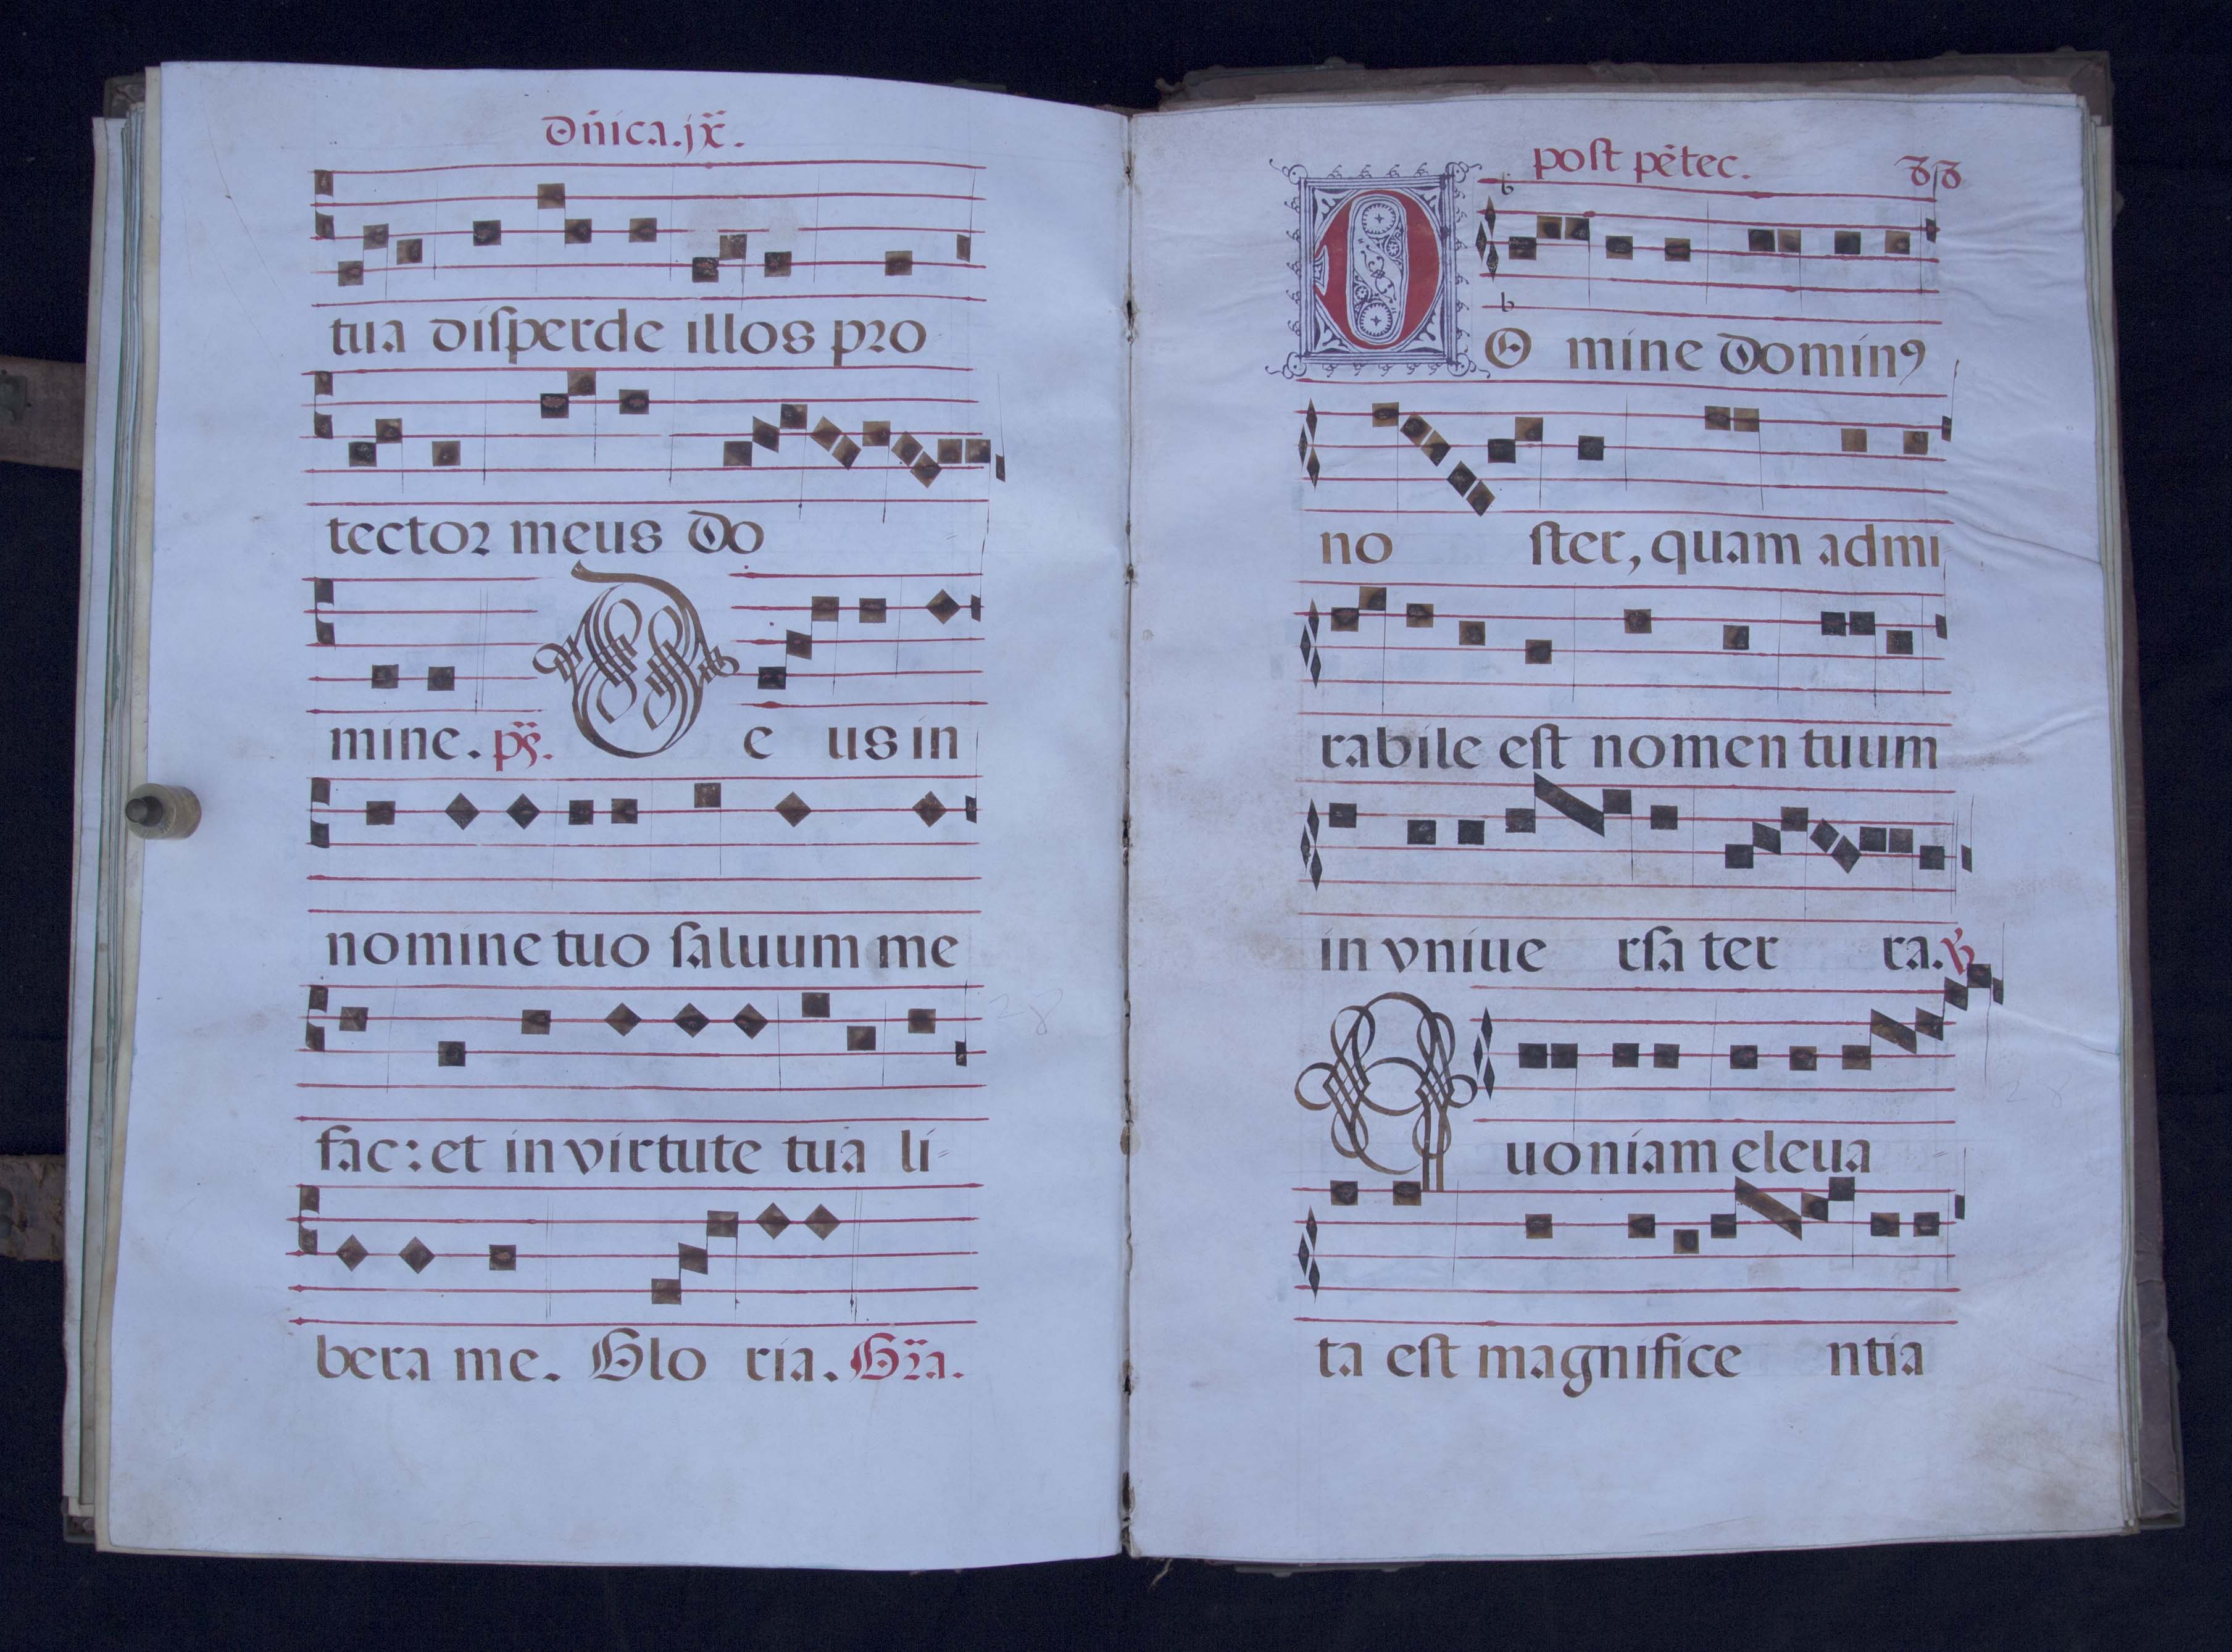 Dñica.jx̃.
tua disperde illos pro
tector meus do
mine. ps̃. De us in
nomine tuo saluum me
fac: et in virtute tua li-
bera me. Glo ria. Gr̃a.
post pẽtec.
DO mine domin9
no ster, quam admi
rabile est nomen tuum
in vniue rsa ter ra. ℣
Quoniam eleua
ta est magnifice ntia